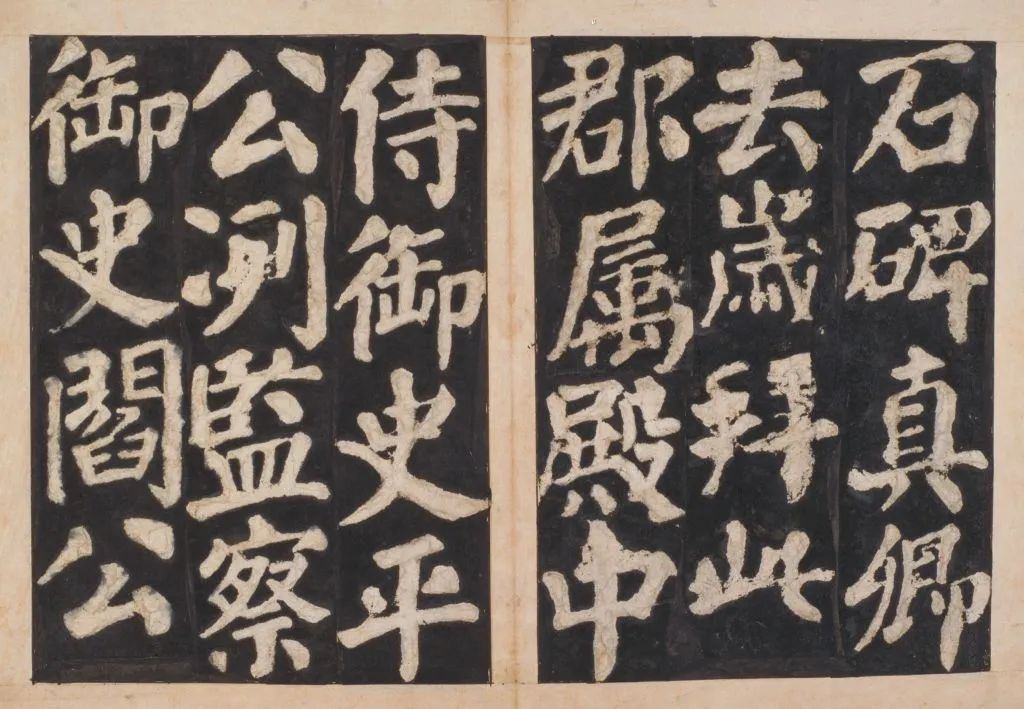 石碑真卿
去歳拜此
郡属殿中
侍御史平
公洌監察
御史閻公